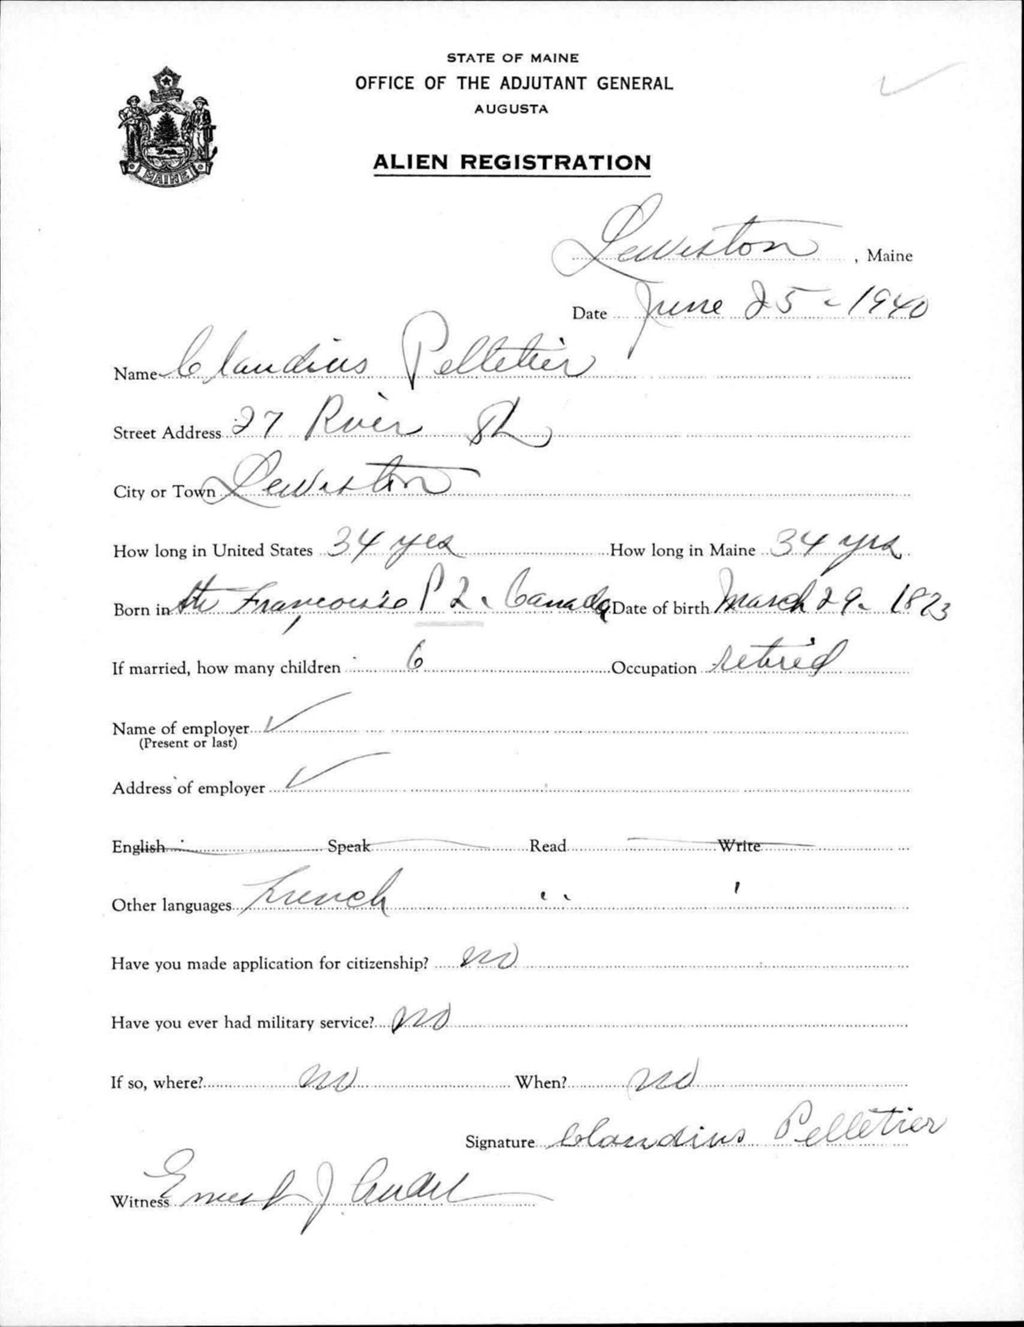 STATE OF MAINE
OFFICE OF THE ADJUTANT GENERAL
AUGUSTA
ALIEN REGISTRATION
MAINE
Lewiston, Maine
Date June 25 - 1940
Name Claudius Pelletier
Street Address 27 River St
City or Town Lewiston
How long in United States 34 yrs How long in Maine 34 yrs
Born in Ste Françoise P Q. Canada Date of birth March 29 - 1873
If married, how many children 6 Occupation retired
Name of employer ✓
(Present or last)
Address of employer ✓
English - Speak - Read - Write -
Other languages French " "
Have you made application for citizenship? no
Have you ever had military service? no
If so, where? no When? no
Signature Claudius Pelletier
Witness Ernest J.